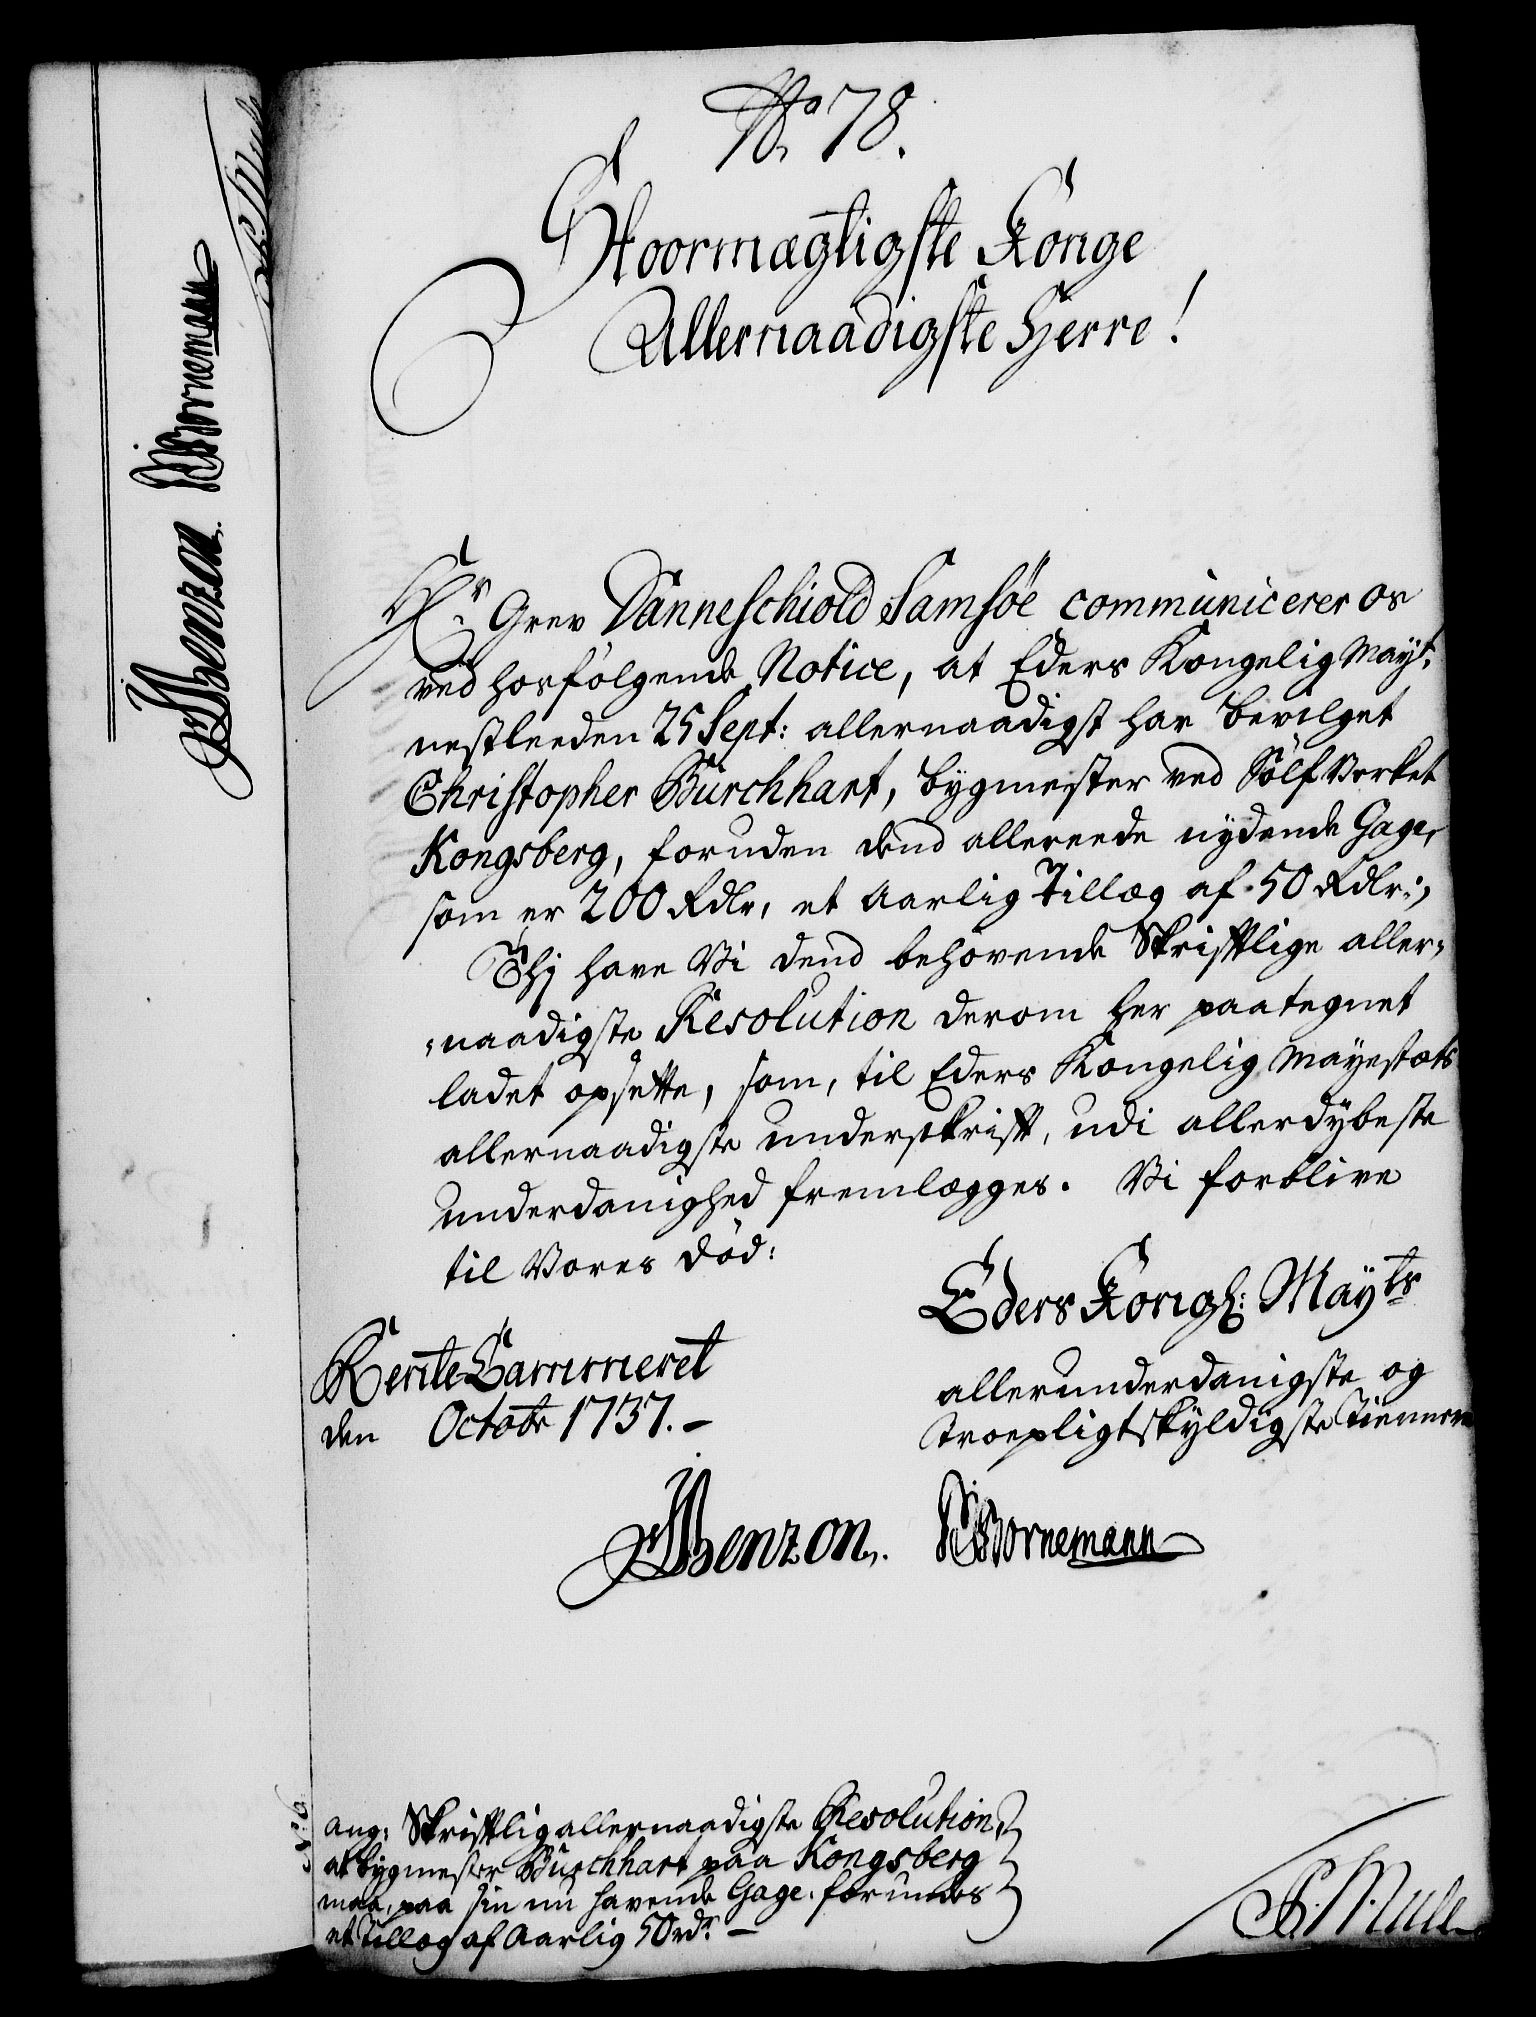 No 78.
Stoormægtigste Konge
Allernaadigste Herre!
Hr. Grev Danneschiold Samsöe communicerer os
ved hosfölgende Notice, at Eders Kongelig Mayt.
nestleeden 25 Sept: allernaadigst har bevilget
Christopher Burchhart, bygmester ved Sölf Verket
Kongsberg, foruden dend allereede nydende Gage,
som er 200 Rdlr, et Aarlig Tillæg af 50 Rdlr:,
Thj have Vi dend behövende Skrifftlige aller-
-naadigste Resolution derom her paategnet
ladet opsette, som, til Eders Kongelig Mayestæts
allernaadigste underskrifft, udi allerdybeste
underdanighed fremlægges. Vi forblive
til Vores Död:
Eders Kongl: Mayts
allerunderdanigste og
troepligtskyldigste Tiennere
Rente-Cammeret
den Octobr 1737.-
Benzon. Bornemann
No: 6
ang: Skrifftlig allernaadigste Resolution,
at bygmester Burchhart paa Kongsberg
maa, paa sin nu havende Gage, forundes
et Tillæg af Aarlig 50 rdr. -
Benzon. Bornemann